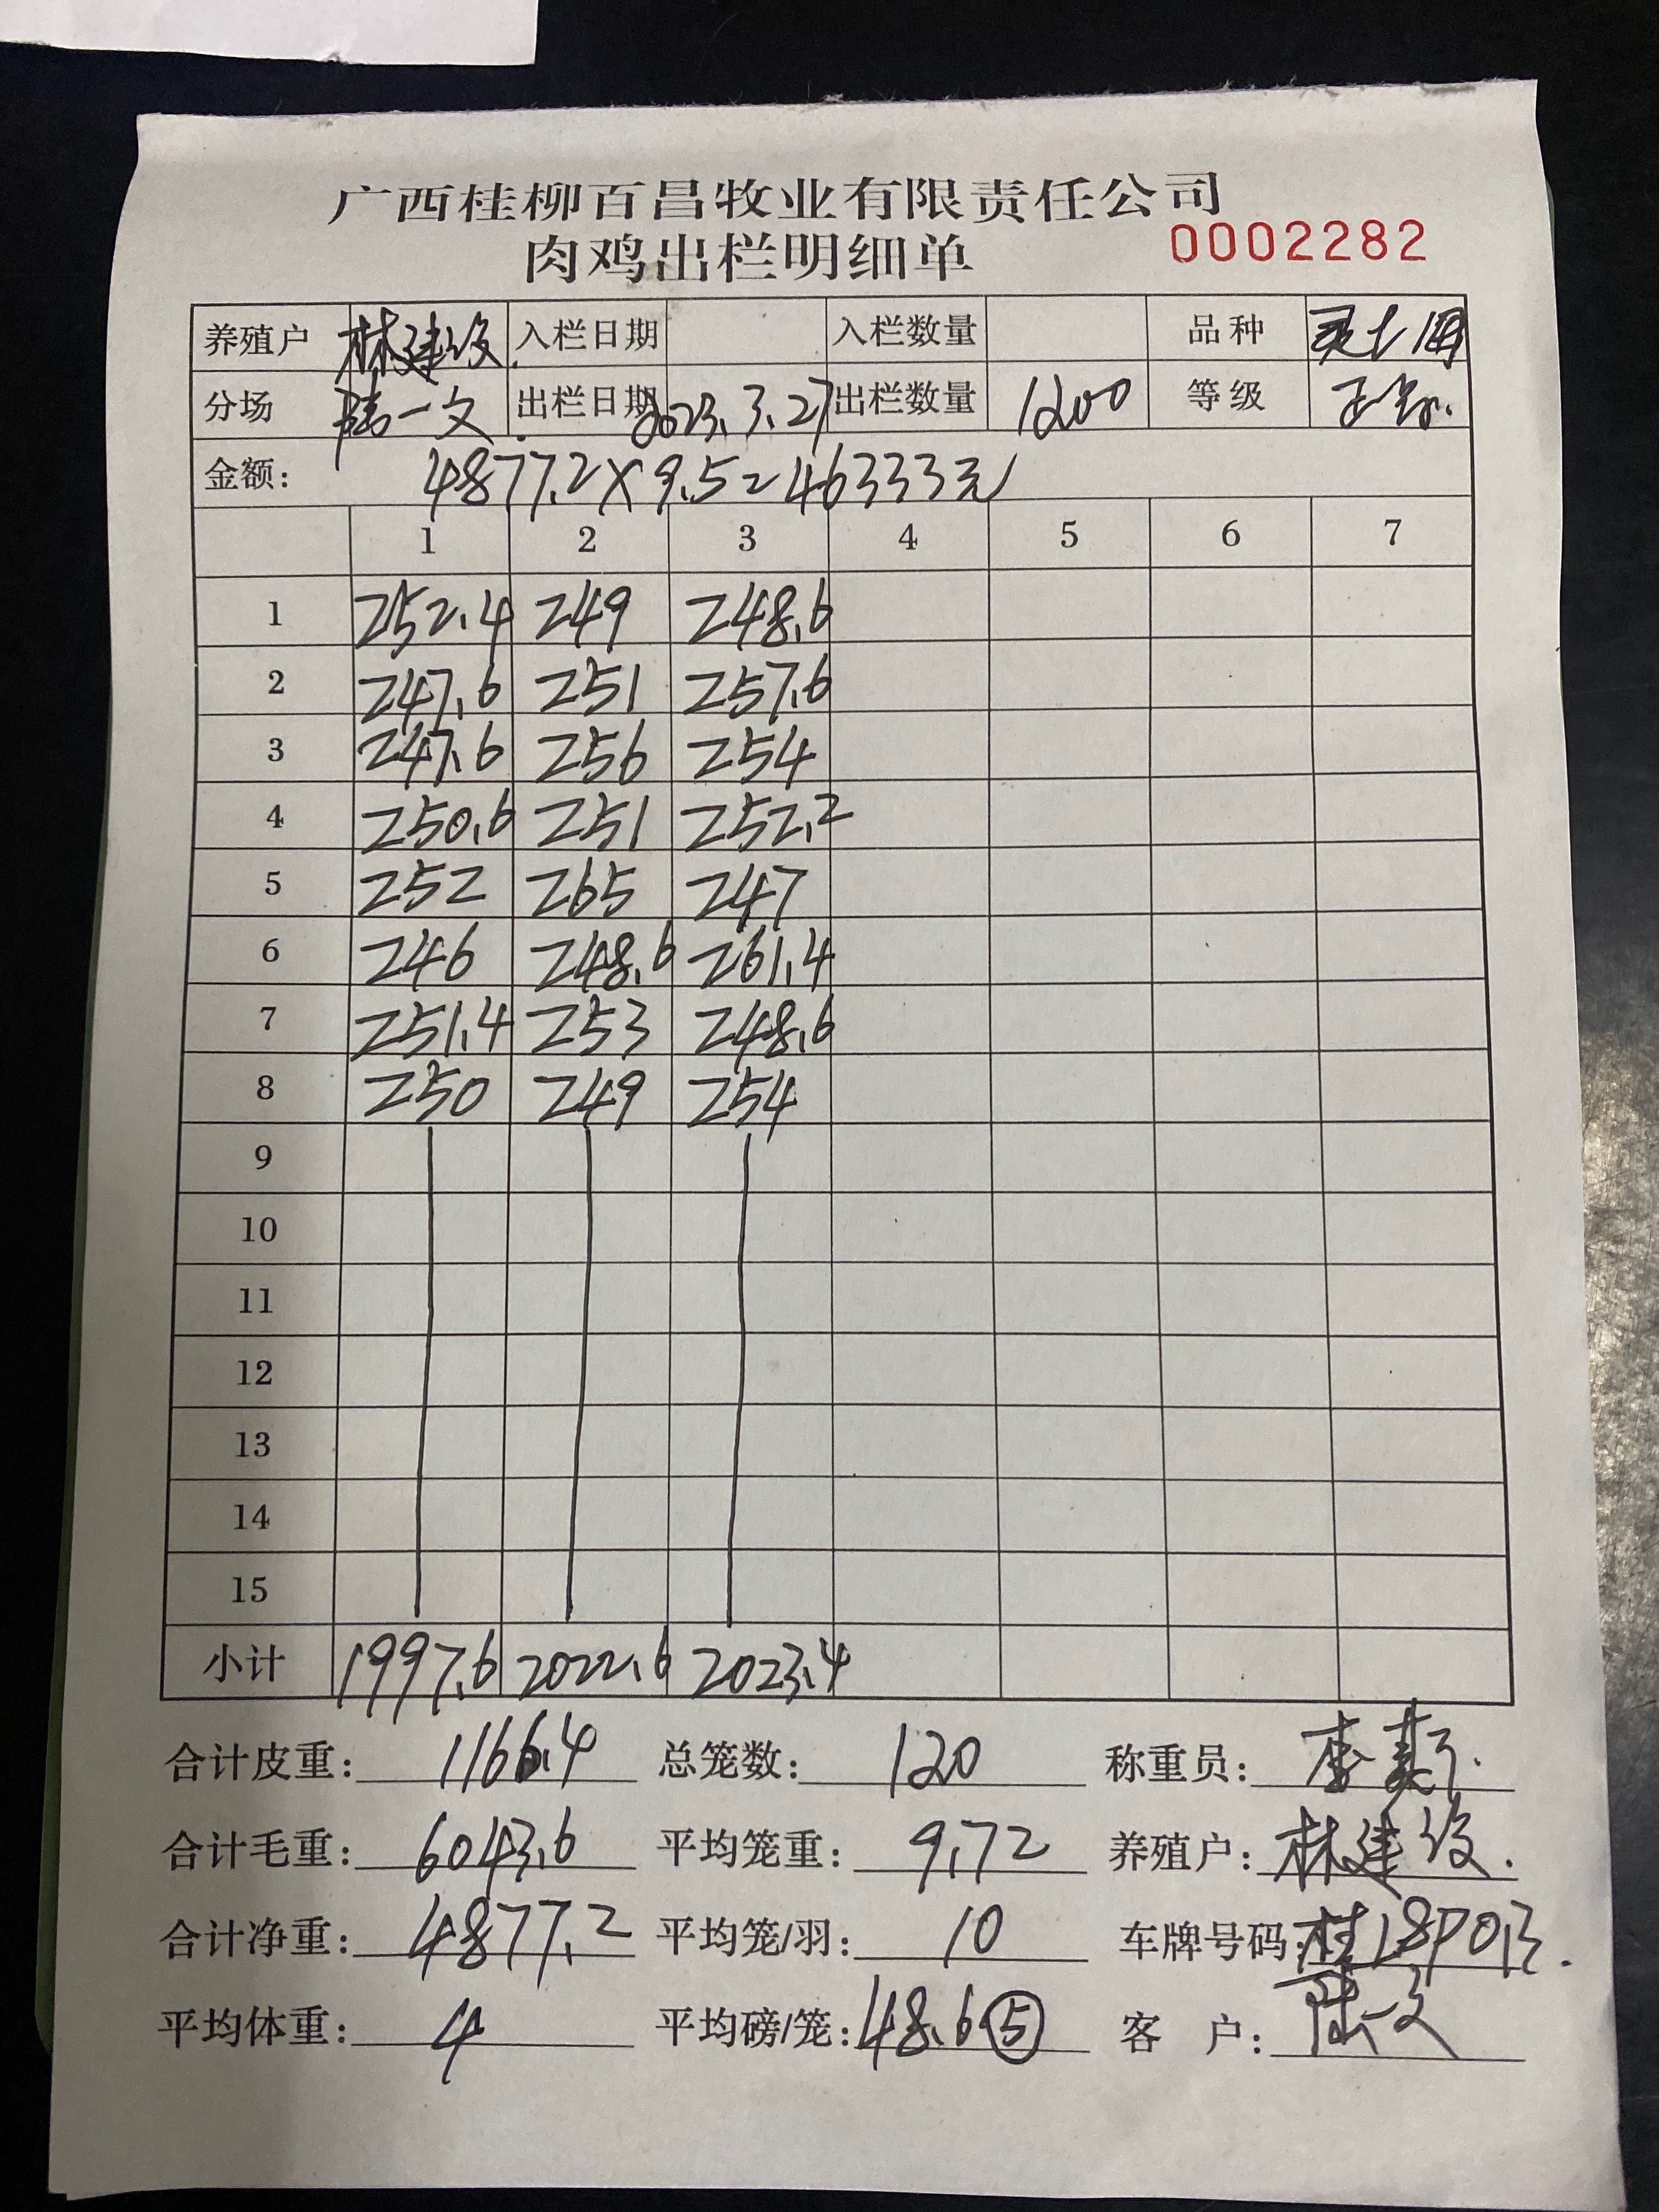 广西桂柳百昌牧业有限责任公司
肉鸡出栏明细单 0002282
养殖户 林建 入栏日期 入栏数量 品种
分场 陆一文 出栏日期 2023.3.27 出栏数量 1200 等级
金额: 4877.2×9.5=46333元
1 2 3 4 5 6 7
1 252.4 249 248.6
2 247.6 251 257.6
3 247.6 256 254
4 250.6 251 252.2
5 252 265 247
6 246 248.6 261.4
7 251.4 253 248.6
8 250 249 254
9
10
11
12
13
14
15
小计 1997.6 2022.6 2023.4
合计皮重: 1166.4 总笼数: 120 称重员: 李
合计毛重: 6043.6 平均笼重: 9.72 养殖户: 林建
合计净重: 4877.2 平均笼/羽: 10 车牌号码: 桂
平均体重: 4 平均磅/笼: 48.6 ⑤ 客 户: 陆一文